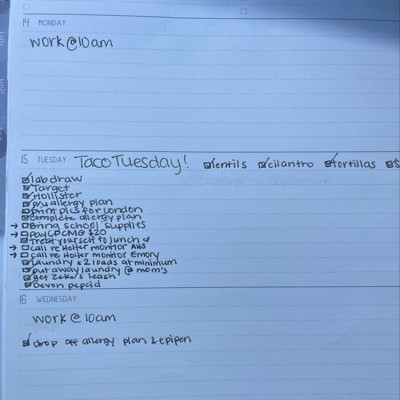 14 MONDAY
work @ 10am
15 TUESDAY Taco Tuesday! lentils cilantro tortillas
lab draw
Target
Hollister
p/u allergy plan
print pics for London
complete allergy plan
→ Bring school supplies
→ pay CPCM@ $20
treat yourself to lunch
→ call re Holter monitor AHS
→ call re Holter monitor Emory
laundry x2 loads at minimum
put away laundry @ mom's
get Zeke's leash
Devon
16 WEDNESDAY
work @ 10am
drop off allergy plan & epipen